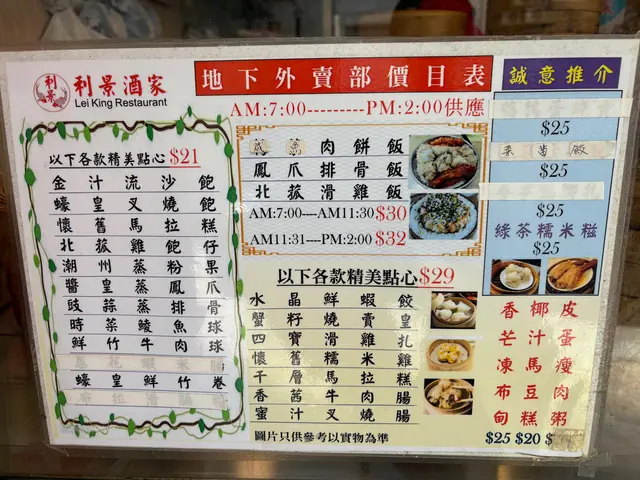 利景酒家
Lei King Restaurant
地下外賣部價目表
AM:7:00---------PM:2:00供應
以下各款精美點心 $21
金汁流沙飽
蠔皇叉燒飽
懷舊馬拉糕
北菰雞飽仔
潮州蒸粉果
醬皇蒸鳳爪
豉蒜蒸排骨
時菜鯪魚球
鮮竹牛肉球
蠔皇鮮竹卷
肉餅飯
鳳爪排骨飯
北菰滑雞飯
AM:7:00---AM11:30 $30
AM:11:31----PM:2:00 $32
以下各款精美點心$29
水晶鮮蝦餃
蟹籽燒賣皇
四寶滑雞扎
懷舊糯米雞
千層馬拉糕
香茜牛肉腸
蜜汁叉燒腸
圖片只供參考以實物為準
誠意推介
$25
菜苗餃
$25
$25
綠茶糯米糍
$25
香芒凍布甸
椰汁馬豆糕
皮蛋瘦肉粥
$25 $20 $